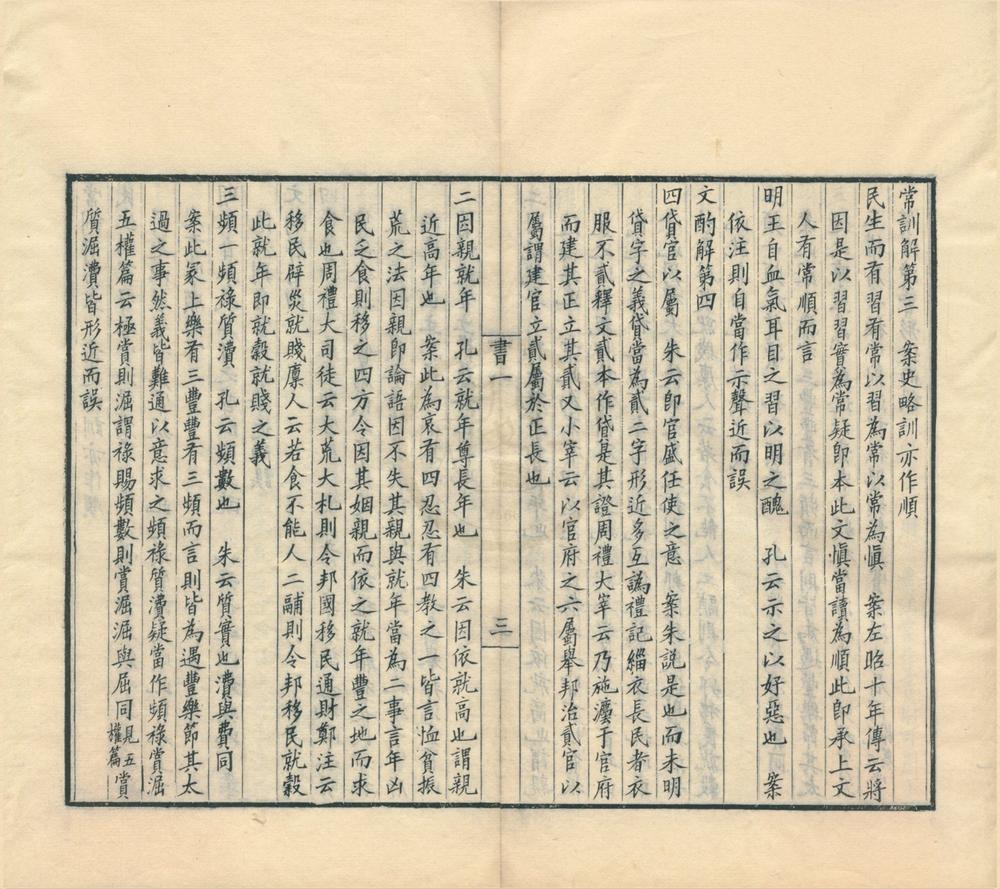 常訓解第三　案史略訓亦作順
民生而有習有常以習為常以常為愼　案左昭十年傳云將
因是以習習實為常疑即本此文愼當讀為順此即承上文
人有常順而言
明王自血氣耳目之習以明之醜　孔云示之以好惡也　案
依注則自當作示聲近而誤
文酌解第四
四貸官以屬　朱云即官盛任使之意　案朱說是也而未明
貸字之義貸當為貳二字形近多互譌禮記緇衣長民者衣
服不貳釋文貳本作貸是其證周禮大宰云乃施灋于官府
而建其正立其貳又小宰云以官府之六屬舉邦治貳官以
屬謂建官立貳屬於正長也
書一
三
二因親就年　孔云就年尊長年也　朱云因依就高也謂親
近高年也　案此為哀有四忍忍有四教之一皆言恤貧振
荒之法因親即論語因不失其親與就年當為二事言年凶
民乏食則移之四方令因其姻親而依之就年豐之地而求
食也周禮大司徒云大荒大札則令邦國移民通財鄭注云
移民辟災就賤廩人云若食不能人二鬴則令邦移民就穀
此就年即就穀就賤之義
三頻一頻祿質瀆　孔云頻數也　朱云質實也瀆與費同
案此冡上樂有三豐豐有三頻而言則皆為遇豐樂節其太
過之事然義皆難通以意求之頻祿質瀆疑當作頻祿賞淈
五權篇云極賞則淈謂祿賜頻數則賞淈淈與屈同見五權篇賞
質淈瀆皆形近而誤